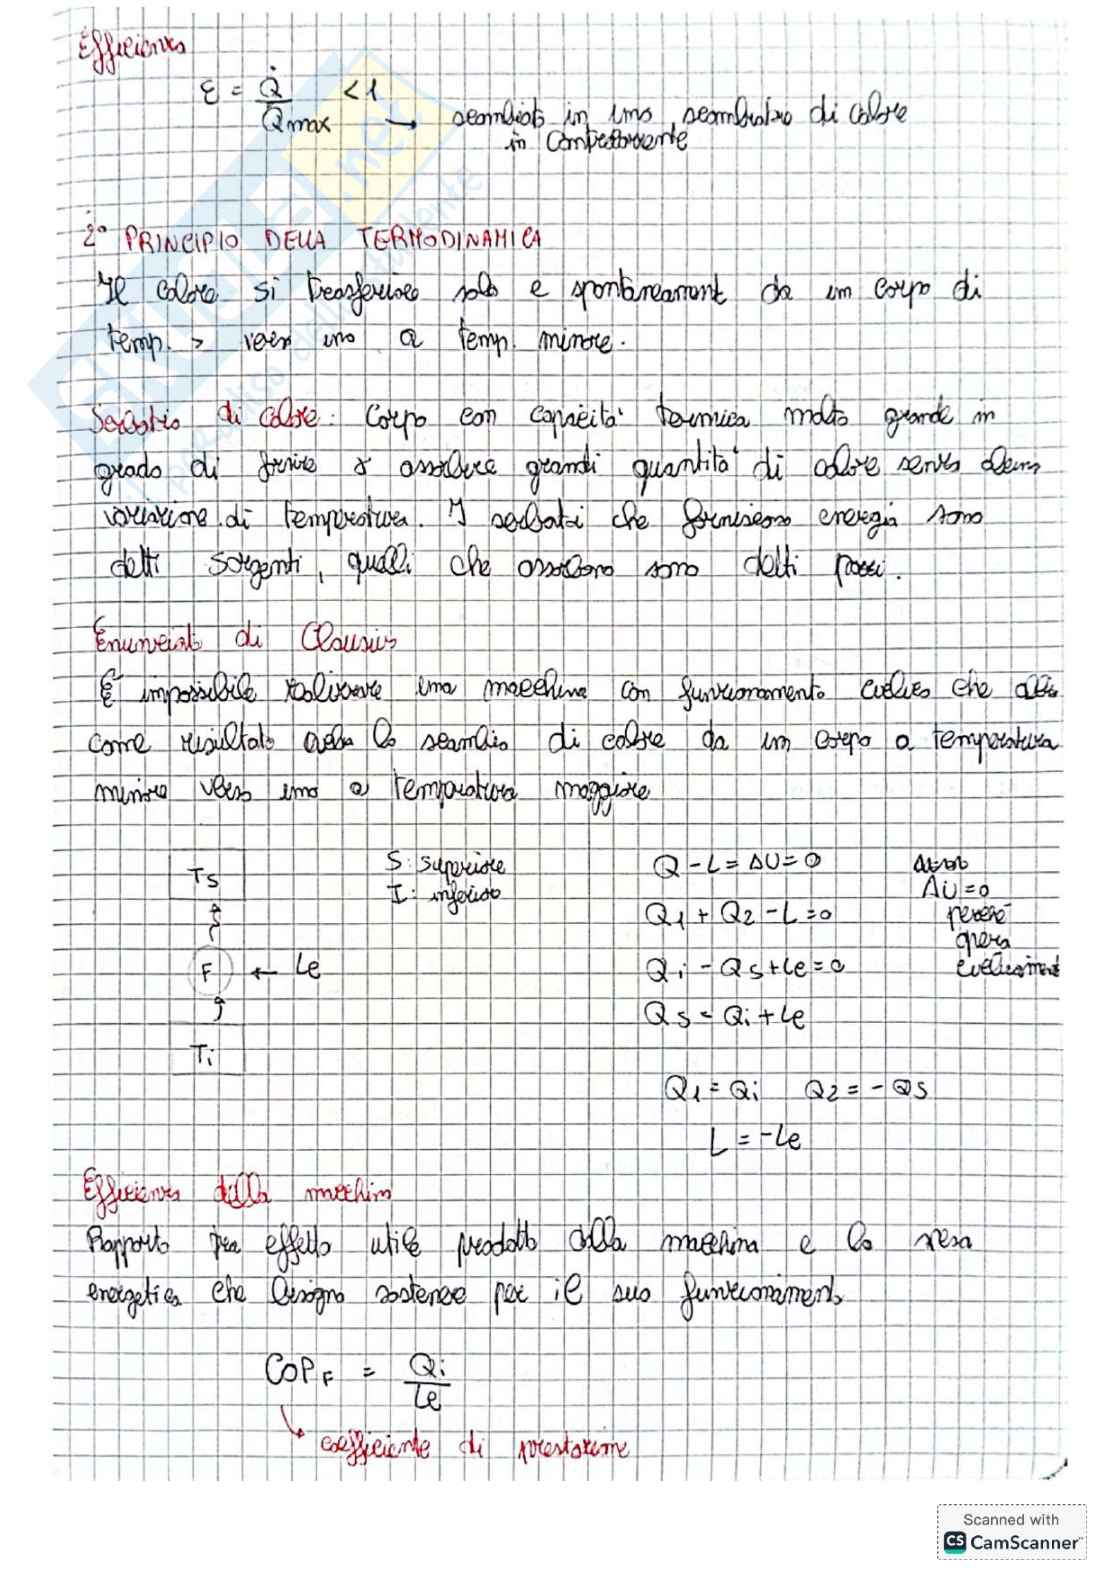 Efficienza
ε = Q̇ / Qmax < 1 → scambiato in uno scambiatore di calore
in controcorrente
2° PRINCIPIO DELLA TERMODINAMICA
Il calore si trasferisce solo e spontaneament da un corpo di
temp. > verso uno a temp. minore.
Serbatoio di calore: Corpo con capacità termica molto grande in
grado di fornire o assorbire grandi quantità di calore senza alcuna
variazione di temperatura. I serbatoi che forniscono energia sono
detti sorgenti, quelli che assorbono sono detti pozzi.
Enunciato di Clausius
È impossibile realizzare una macchina con funzionamento ciclico che
come risultato abbia lo scambio di calore da un corpo a temperatura
minore verso uno a temperatura maggiore
Ts
S: superiore
I: inferiore
F ← Le
Ti
Q - L = ΔU = 0
Q1 + Q2 - L = 0
Qi - Qs + Le = 0
Qs = Qi + Le
ΔU = 0
perché
opera
ciclicament
Q1 = Qi Q2 = - Qs
L = - Le
Efficienza della macchina
Rapporto fra effetto utile prodotto dalla macchina e la spesa
energetica che bisogna sostenere per il suo funzionamento
COP F = Qi / Le
coefficiente di prestazione
SKUOLA.net
Scanned with
CS CamScanner